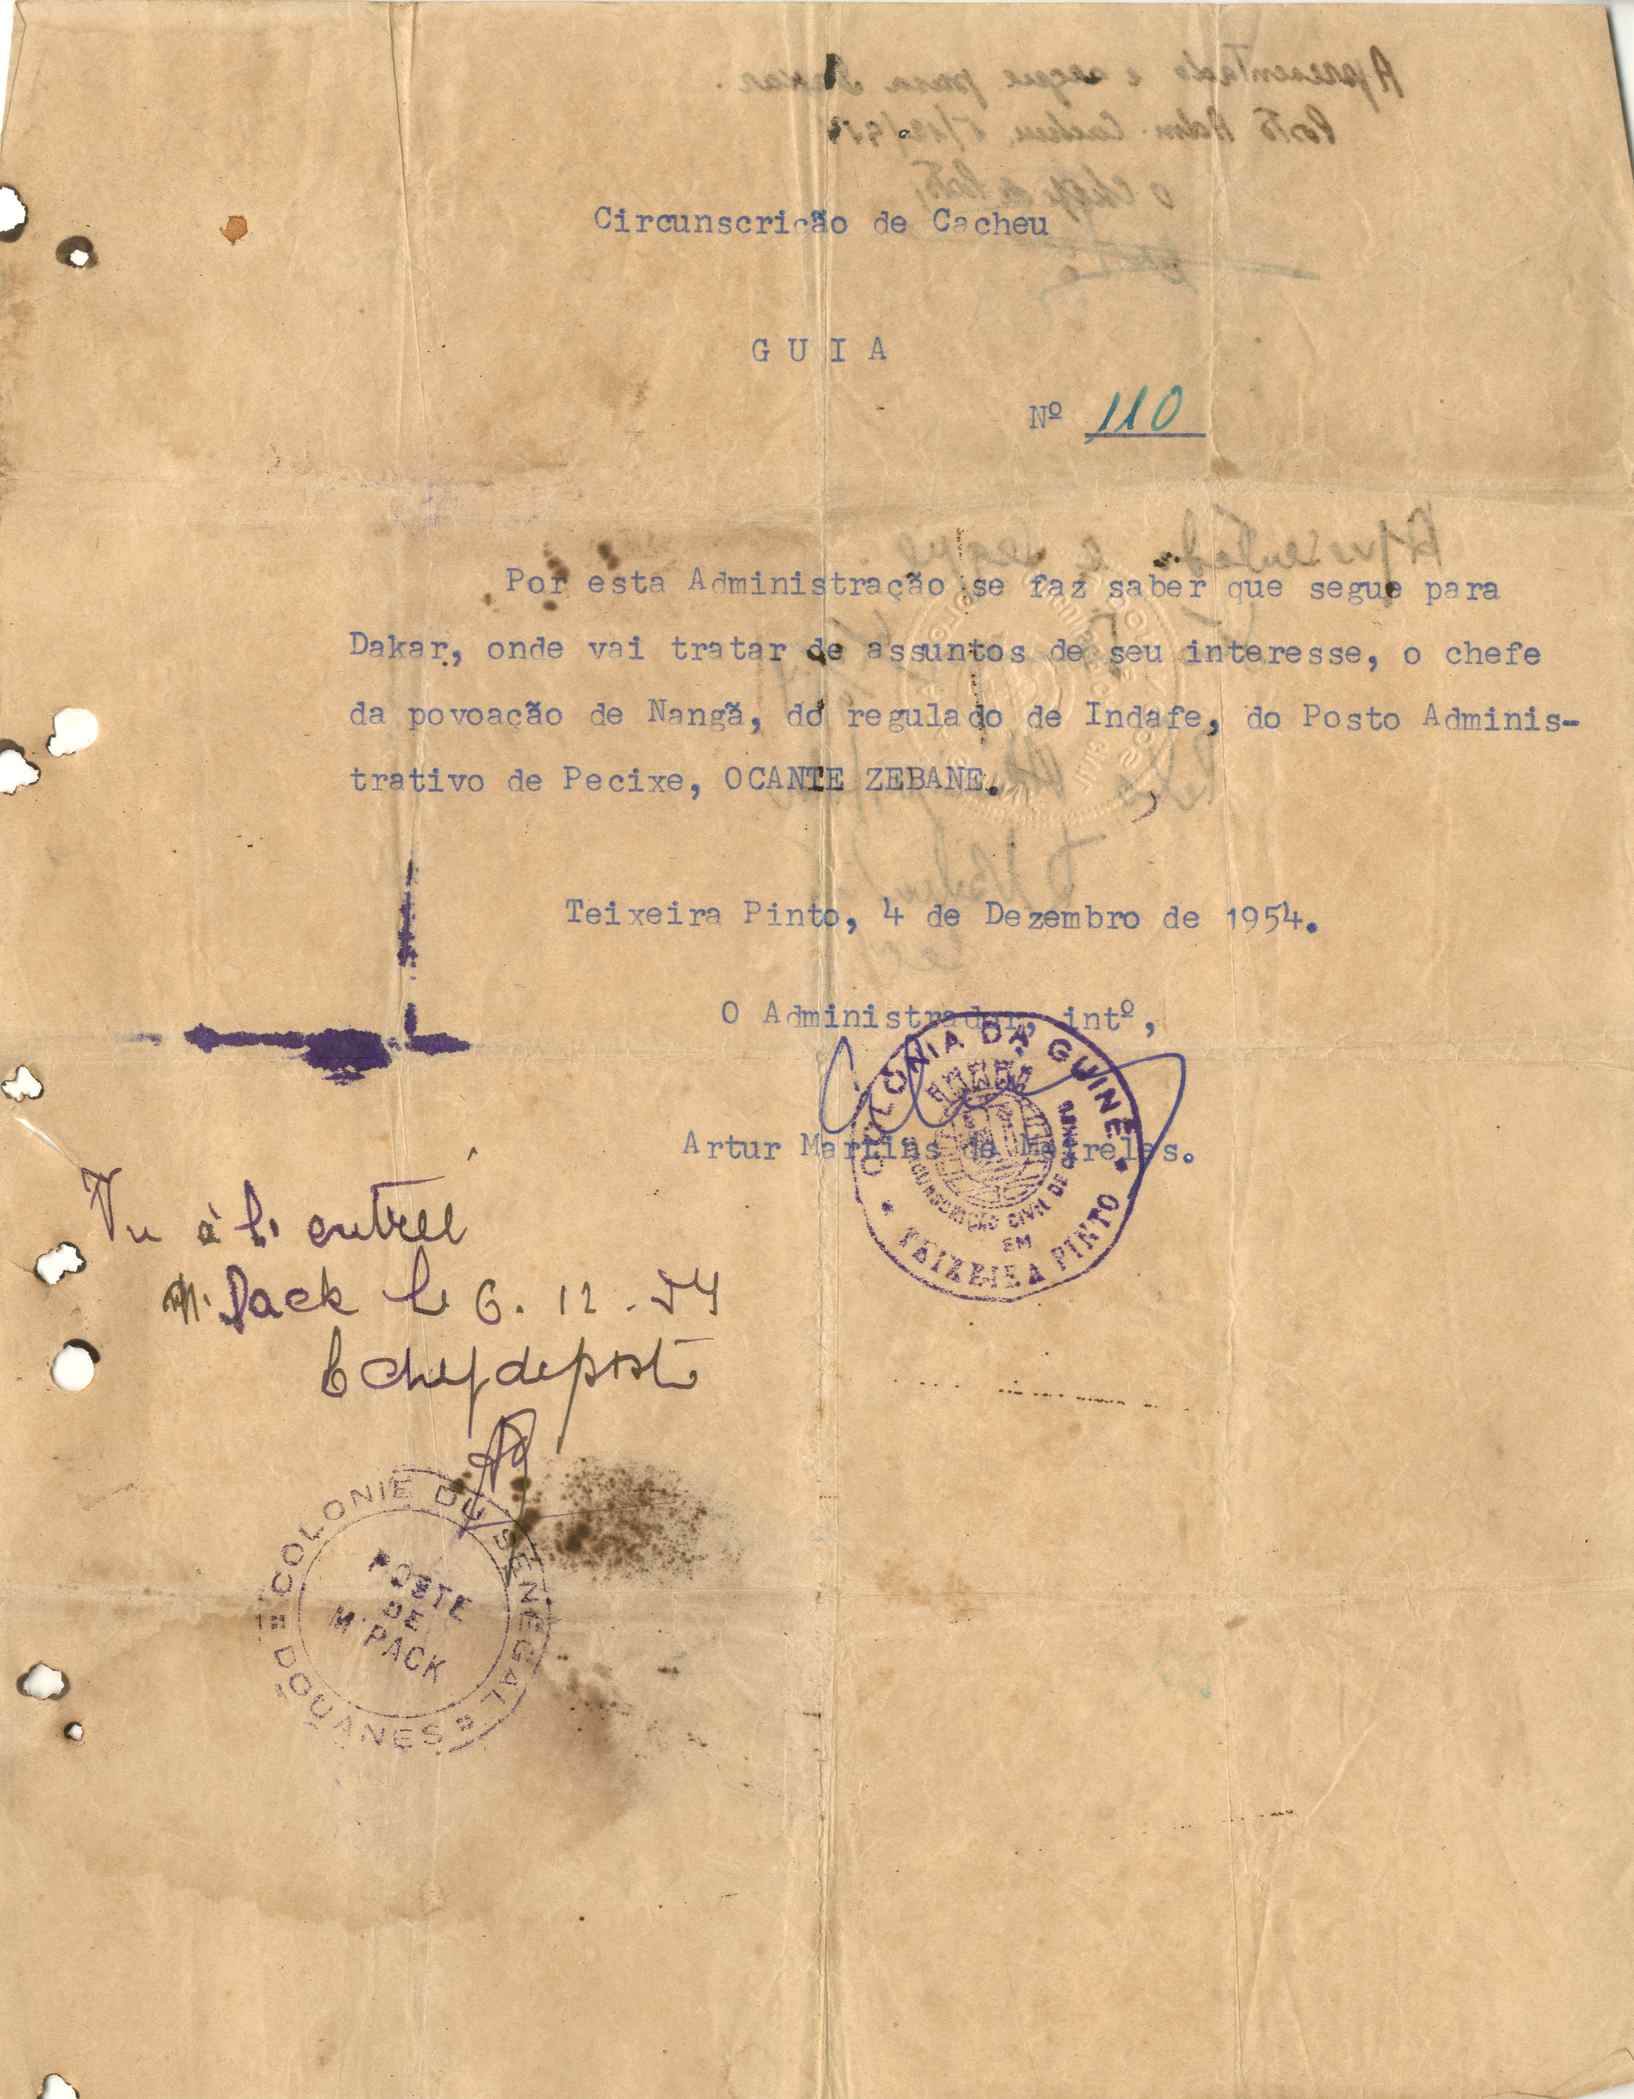 Apresentado e segue para Dakar.
Posto Adm. Cacheu, 5/12/95
O Chefe de Posto,
Circunscrição de Cacheu
G U I A
Nº 110
Apresentado e segue
Por esta Administração se faz saber que segue para
Dakar, onde vai tratar de assuntos de seu interesse, o chefe
da povoação de Nangã, do regulado de Indafe, do Posto Adminis-
trativo de Pecixe, OCANTE ZEBANE.
Teixeira Pinto, 4 de Dezembro de 1954.
O Administrador, intº,
Artur Martins de Meireles.
COLONIA DA GUINÉ
CIRCUNSCRIÇÃO CIVIL DE CACHEU
EM
TEIXEIRA PINTO
Vu à l'entrée
M. Pack le 6. 12. 54
Le chef de poste
COLONIE DU SENEGAL
POSTE
DE
M. PACK
DOUANES